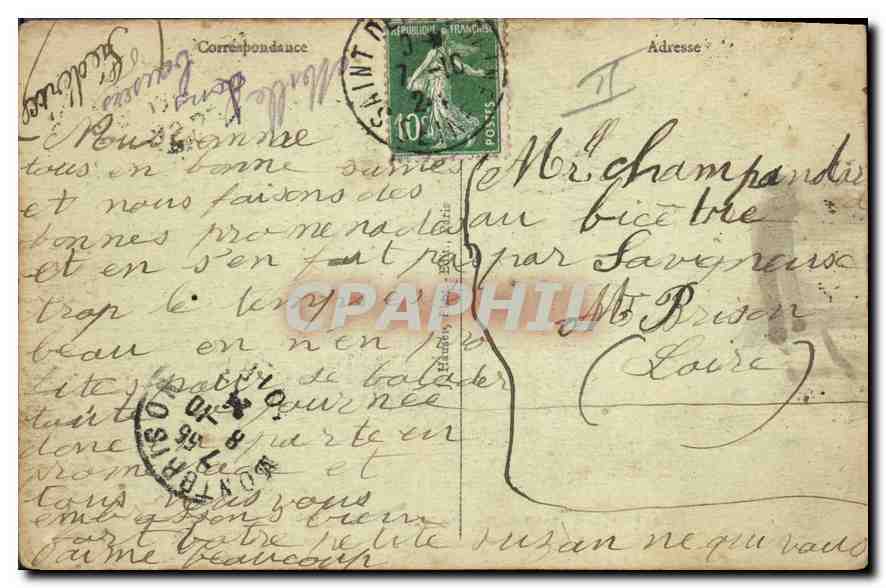 Correspondance
Adresse
RÉPUBLIQUE FRANÇAISE
10c
POSTES
SAINT DE
7 -10
Frederic
nous somme
tous en bonne santes
et nous faisons des
bonnes promenades
et en s'en fait pas
trop le temps est
beau en n'en pro
fites pour se balader
toute la journée
donc parte en
promenade et
tous vous
embrassons bien
fort votre petite suzan ne qui vous
aime beaucoup
Mr Champandar
au bicêtre
par Savigneux
Mt Brison
(Loire)
CPAPHIL
MONTBRISON
7 55
8 -10